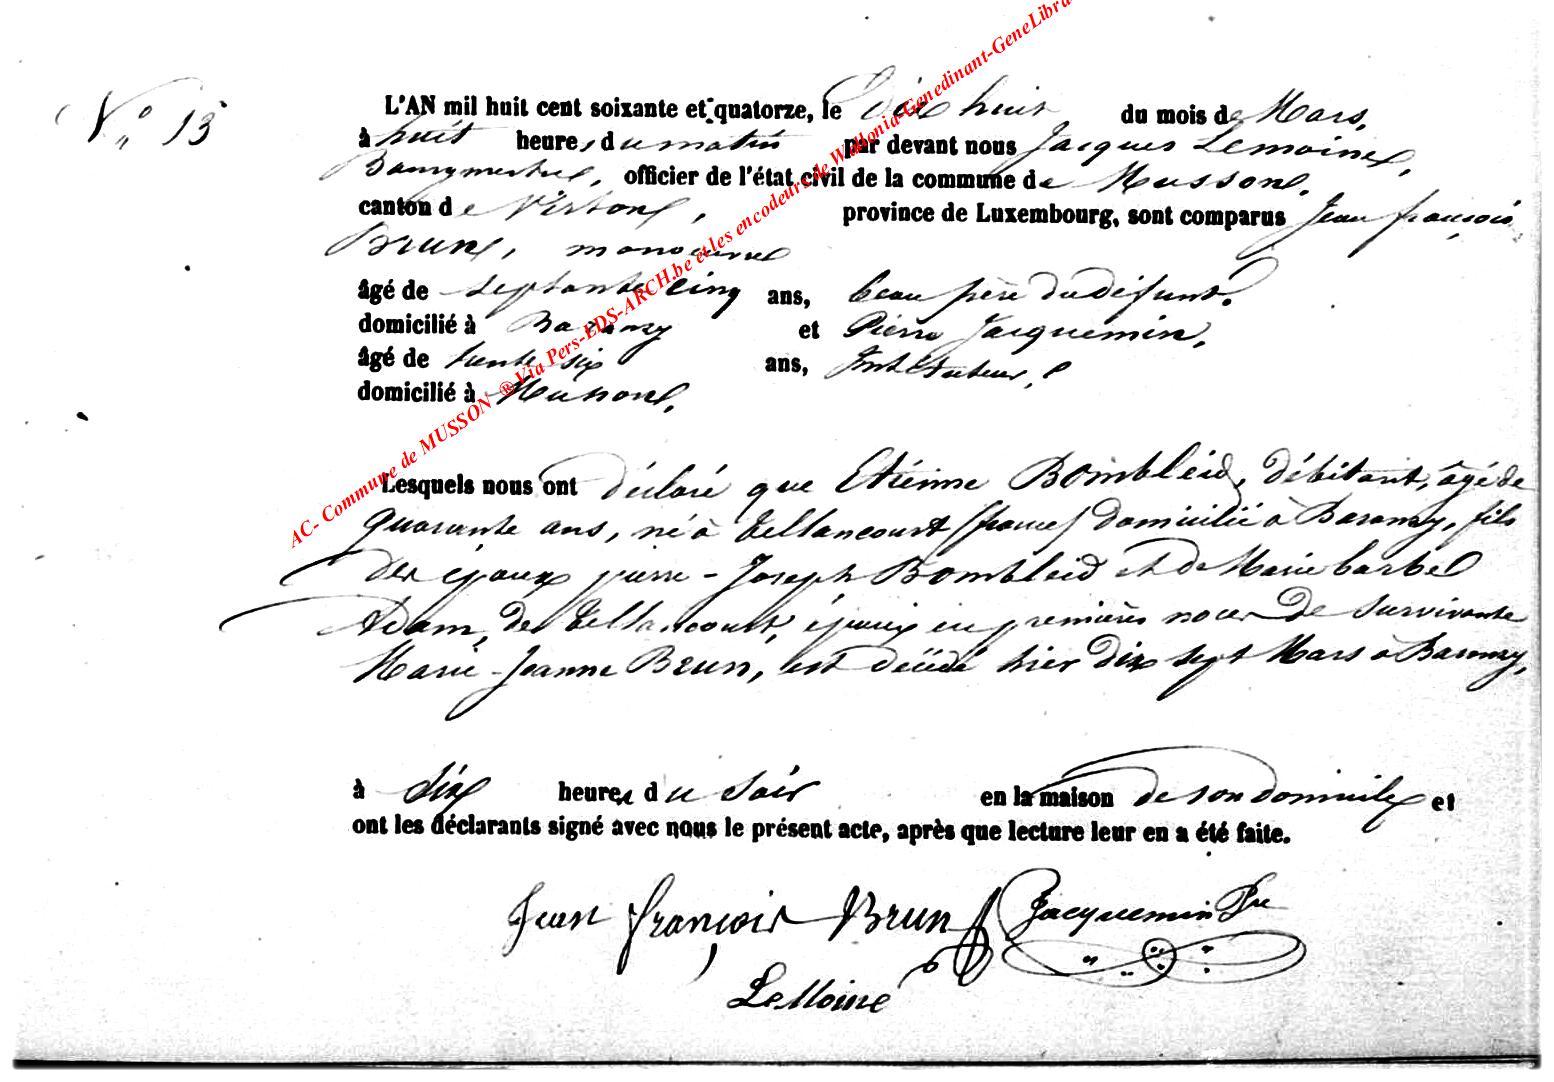 N° 13
L'AN mil huit cent soixante et quatorze, le dix huit du mois de Mars,
à huit heures du matin par devant nous Jacques Lemoine,
Bourgmestre, officier de l'état civil de la commune de Musson,
canton de Virton, province de Luxembourg, sont comparus Jean françois
Brun, manoeuvre
âgé de septante cinq ans, beau père du défunt.
domicilié à Baranzy et Pierre Jacquemin,
âgé de trente six ans, Instituteur,
domicilié à Musson.
Lesquels nous ont déclaré que Etiénne Bombleid, débitant, âgé de
quarante ans, né à Tellancourt (france) domicilié à Baranzy, fils
des époux pierre-Joseph Bombleid et de Marie barbe
Adam, de Tellancourt, époux en premières noces de survivante
Marie-Jeanne Brun, est décédé hier dix sept Mars à Baranzy,
à dix heures du soir en la maison de son domicile et
ont les déclarants signé avec nous le présent acte, après que lecture leur en a été faite.
Jean françois Brun Jacquemin Pre
LeMoine
AC- Commune de MUSSON ® Via Pers-EDS-ARCH.be et les encodeurs de Wallonia-Genedinant-GeneLibra